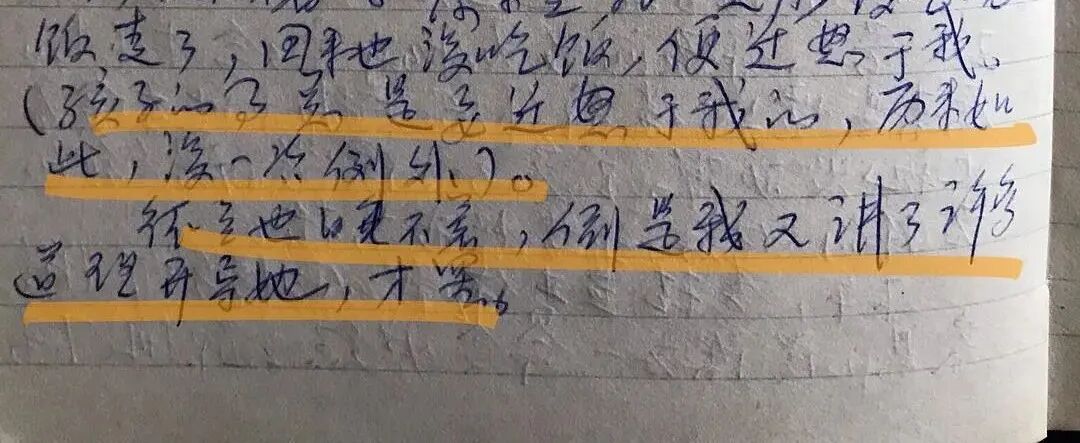 饭走了，回来也没吃饭，便迁怒于我。
(孩子的事总是要迁怒于我的，历来如
此，没一次例外。)。
怀兰也睡不着，倒是我又讲了许多
道理开导她，才罢。